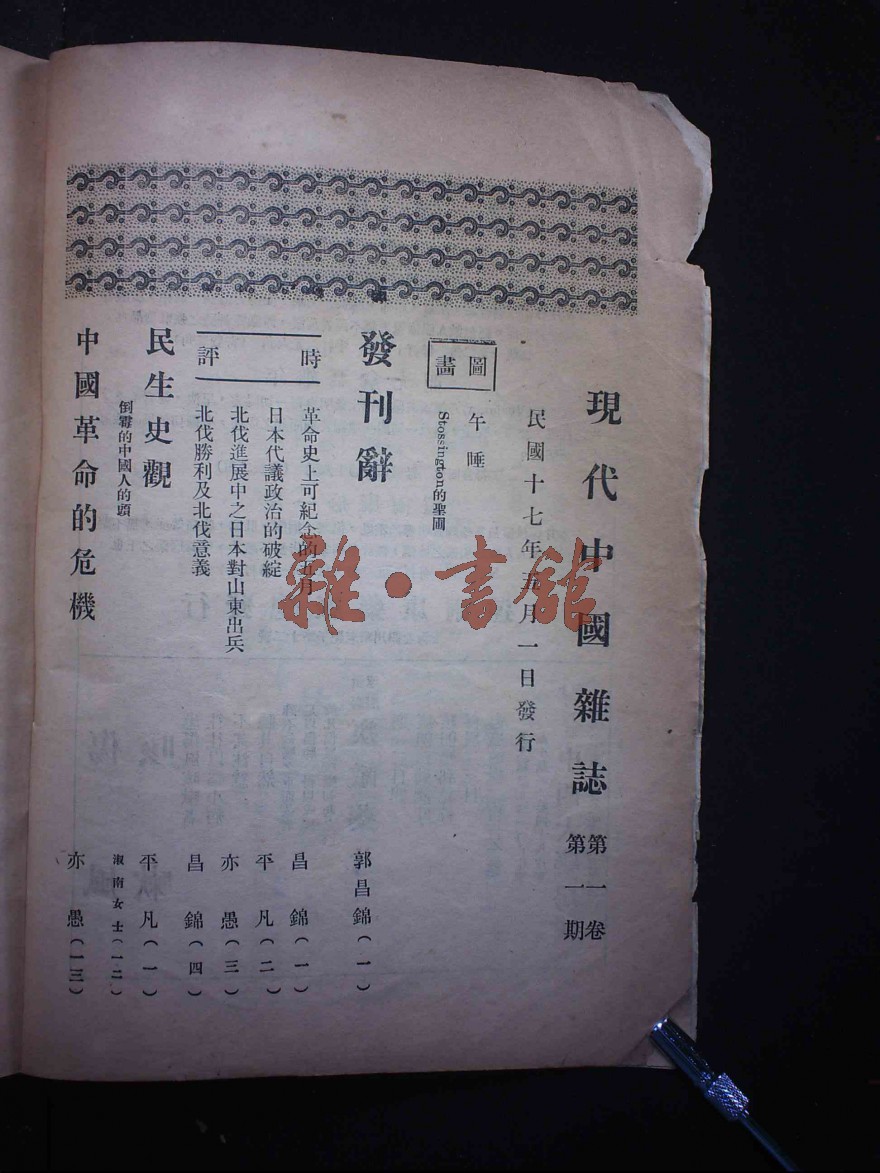 現代中國雜誌 第一卷第一期
民國十七年五月一日發行
圖畫
午睡
Stossington的聖圖
發刊辭 郭昌錦(一)
時評
革命史上可紀念的五月 昌錦(一)
日本代議政治的破綻 平凡(二)
北伐進展中之日本對山東出兵 亦愚(三)
北伐勝利及北伐意義 昌錦(四)
民生史觀 平凡(一)
倒霉的中國人的頭 淑南女士(一二)
中國革命的危機 亦愚(一三)
雜·書館